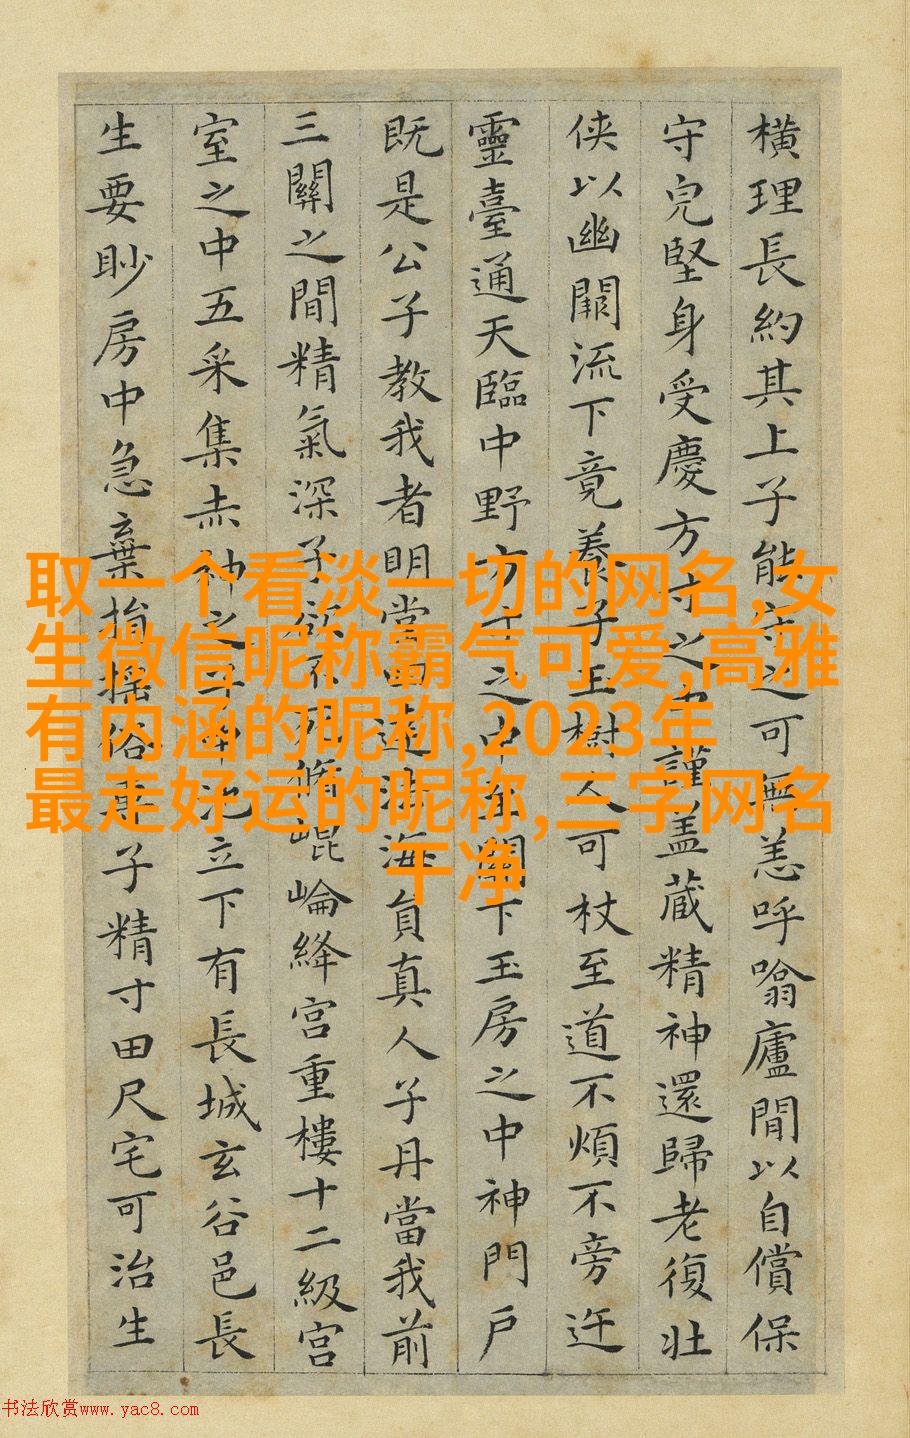 橫理長約其上子能守之可無恙呼噏廬間以自償保
守完堅身受慶方寸之中謹蓋藏精神還歸老復壯
俠以幽闕流下竟養子玉樹人可杖至道不煩不旁迕
靈臺通天臨中野方寸之中至關下玉房之中神門戶
既是公子教我者明堂四達法海員真人子丹當我前
三關之間精氣深子欲不死脩崐崘絳宮重樓十二級宮
室之中五采集赤神之子中池立下有長城玄谷邑長
生要眇房中急棄捐搖俗專子精寸田尺宅可治生
取一个看淡一切的网名,女
生微信昵称霸气可爱,高雅
有内涵的昵称,2023年
最走好运的昵称,三字网名
干净
书法欣赏www.yac8.com